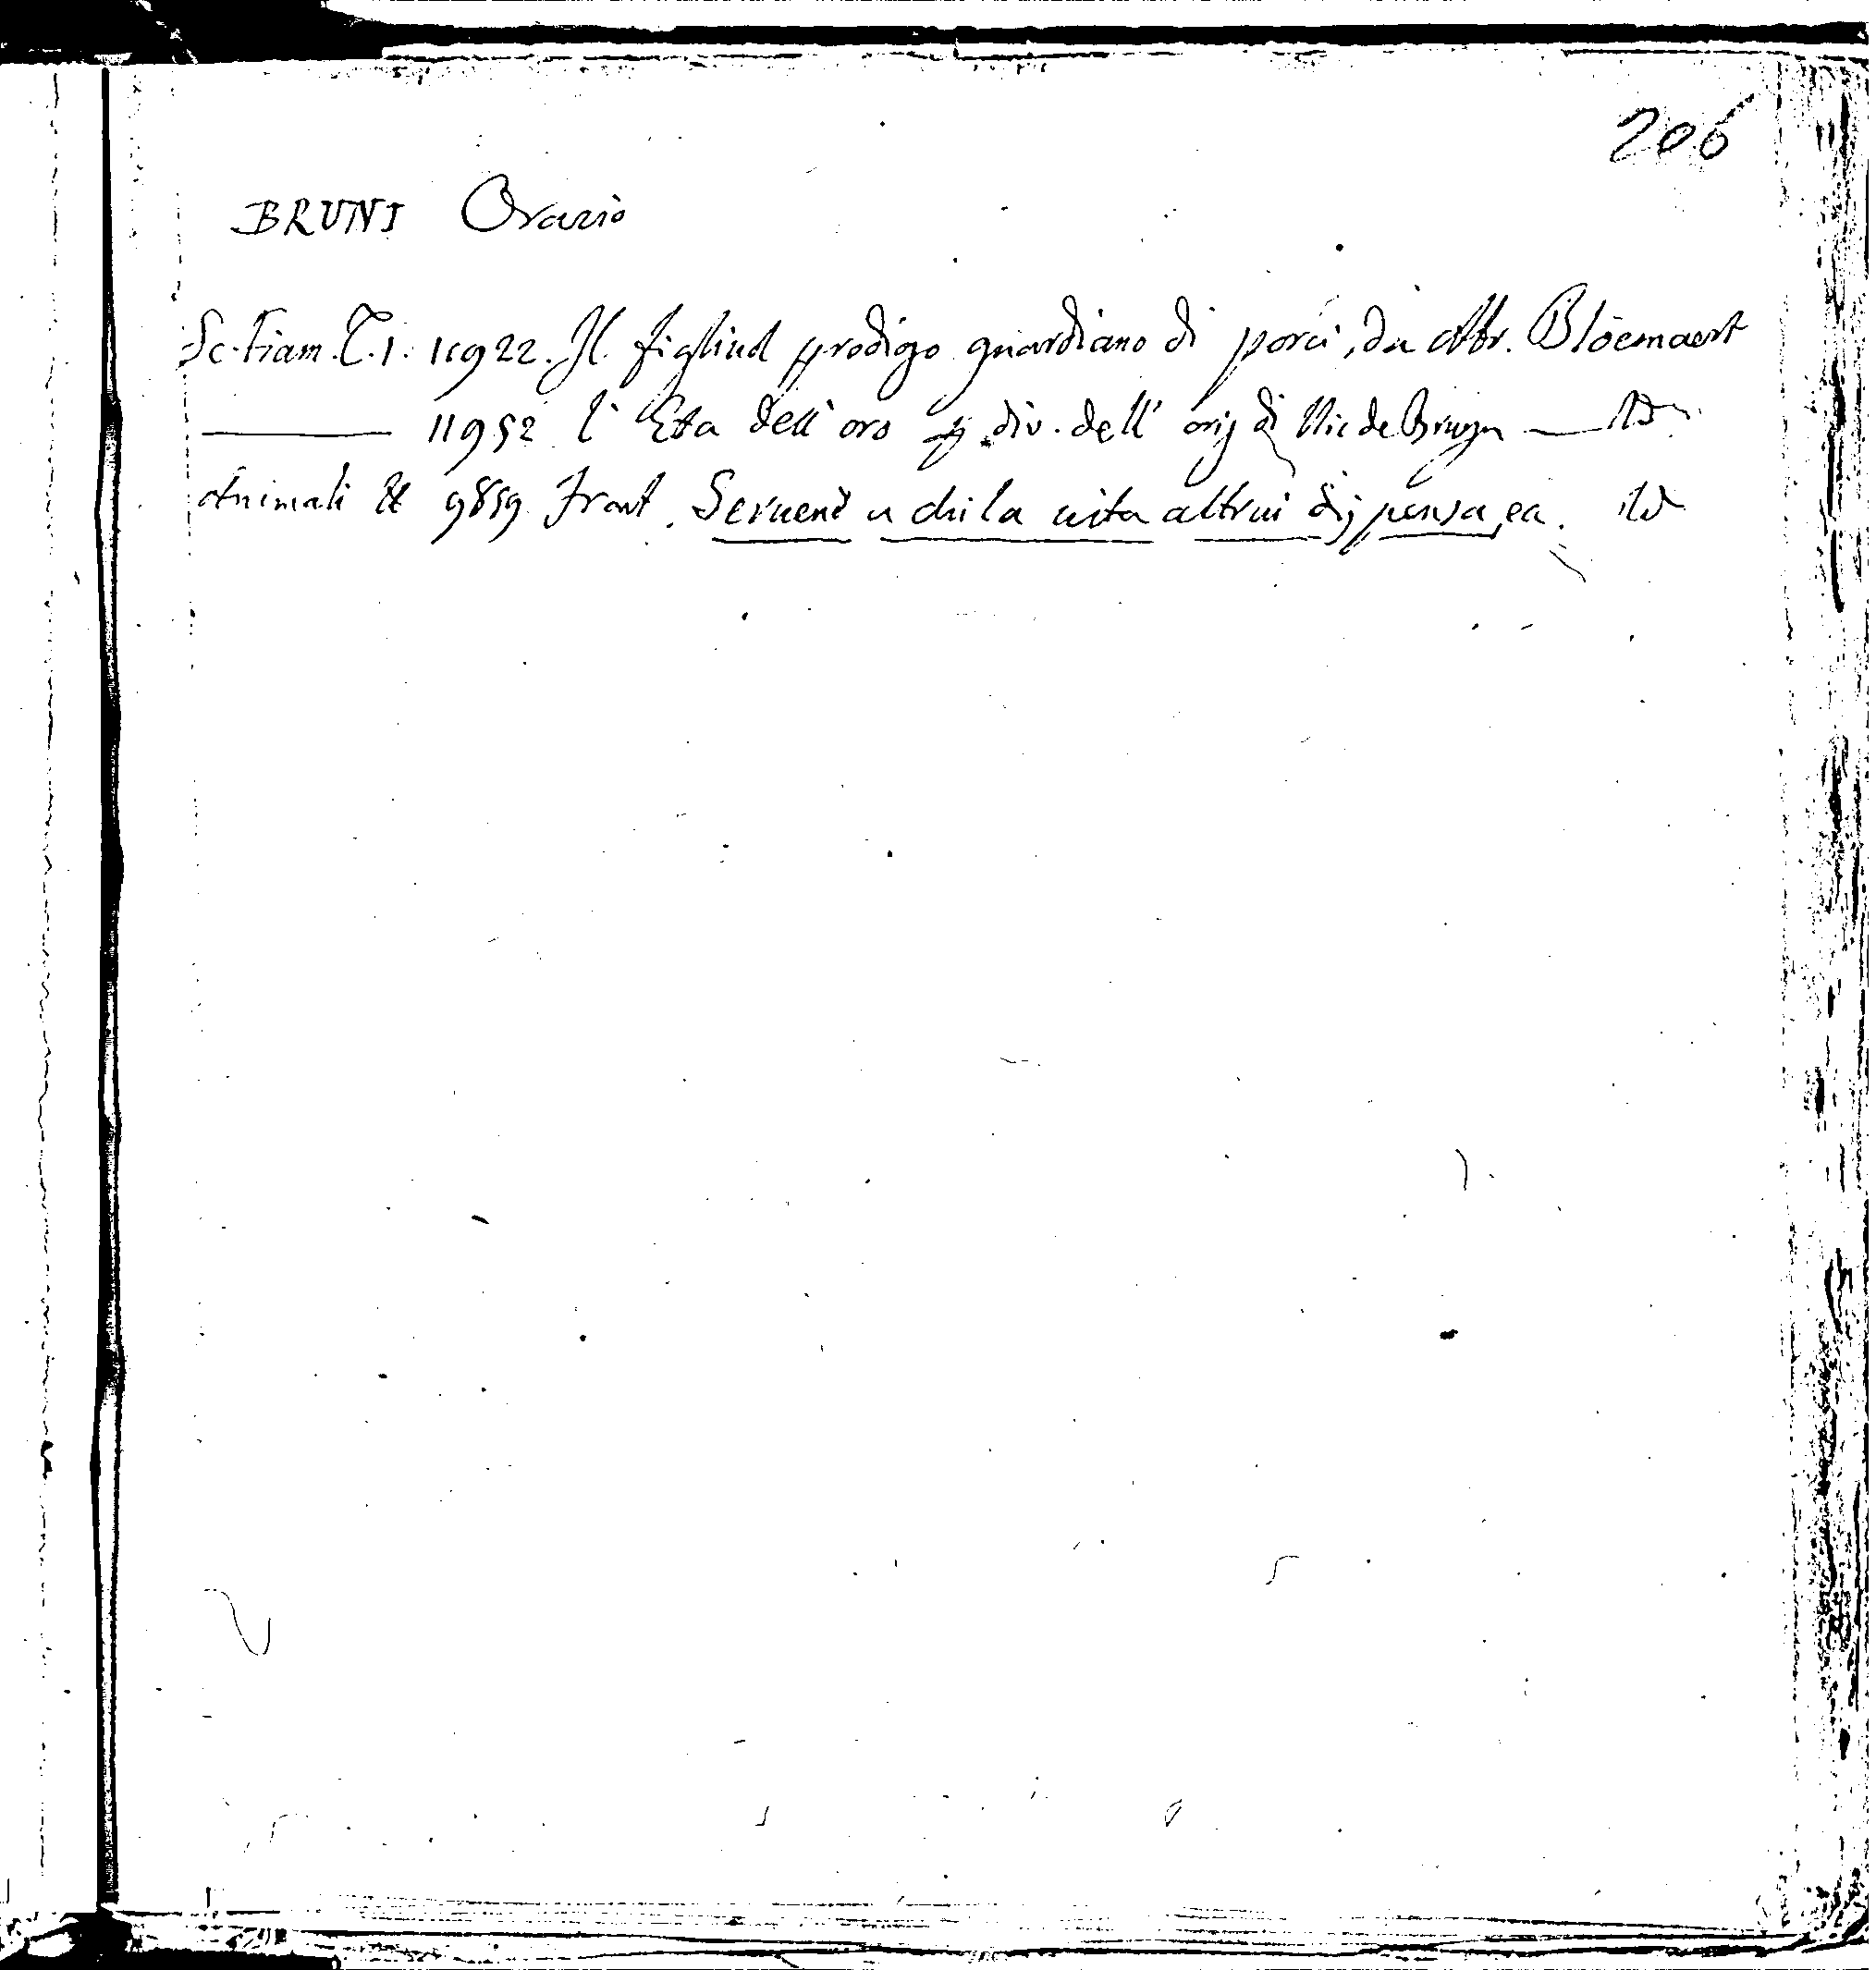 206
BRUNI Orazio
Sc. Fiam. T. 1. 11922. Il figliuol prodigo guardiano di porci, da Abr. Bloemaert
11952 l'Eta dell'oro p. div. dell'orig di Nic de Bruyn
Animali & 9859 Front. Seruendo a chi la uita altrui dispensa, ea.